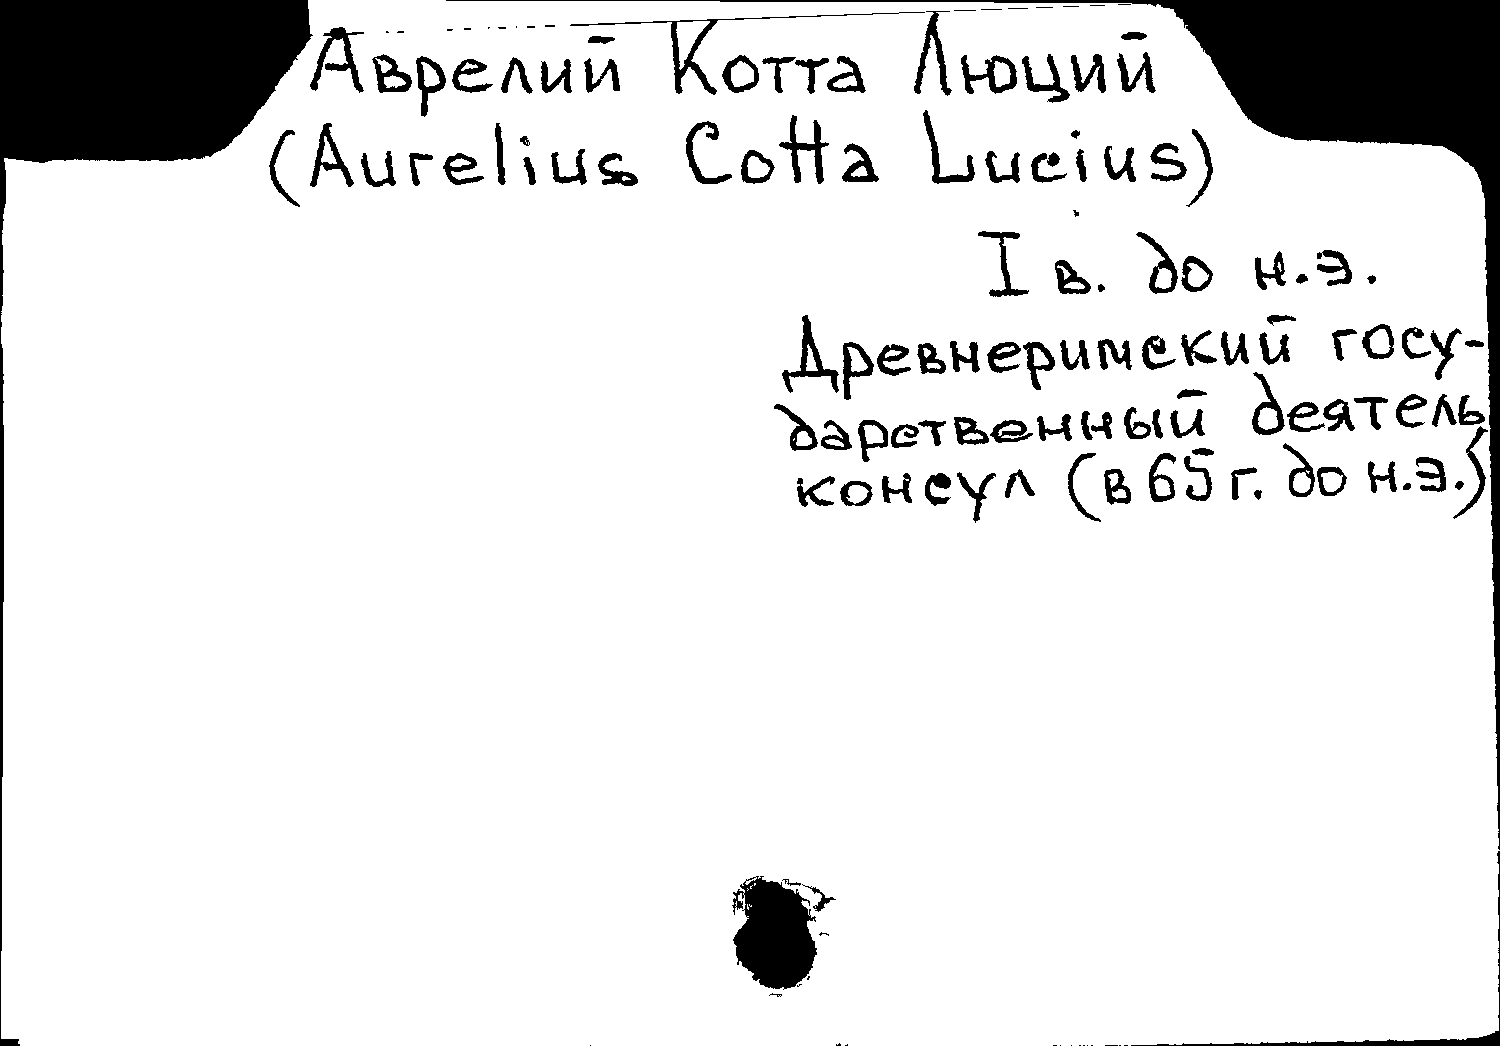 Аврелий Котта Люций
(Aurelius Cotta Lucius)
I в. до н.э.
Древнеримский госу-
дарственный деятель,
консул (в 65 г. до н.э.)